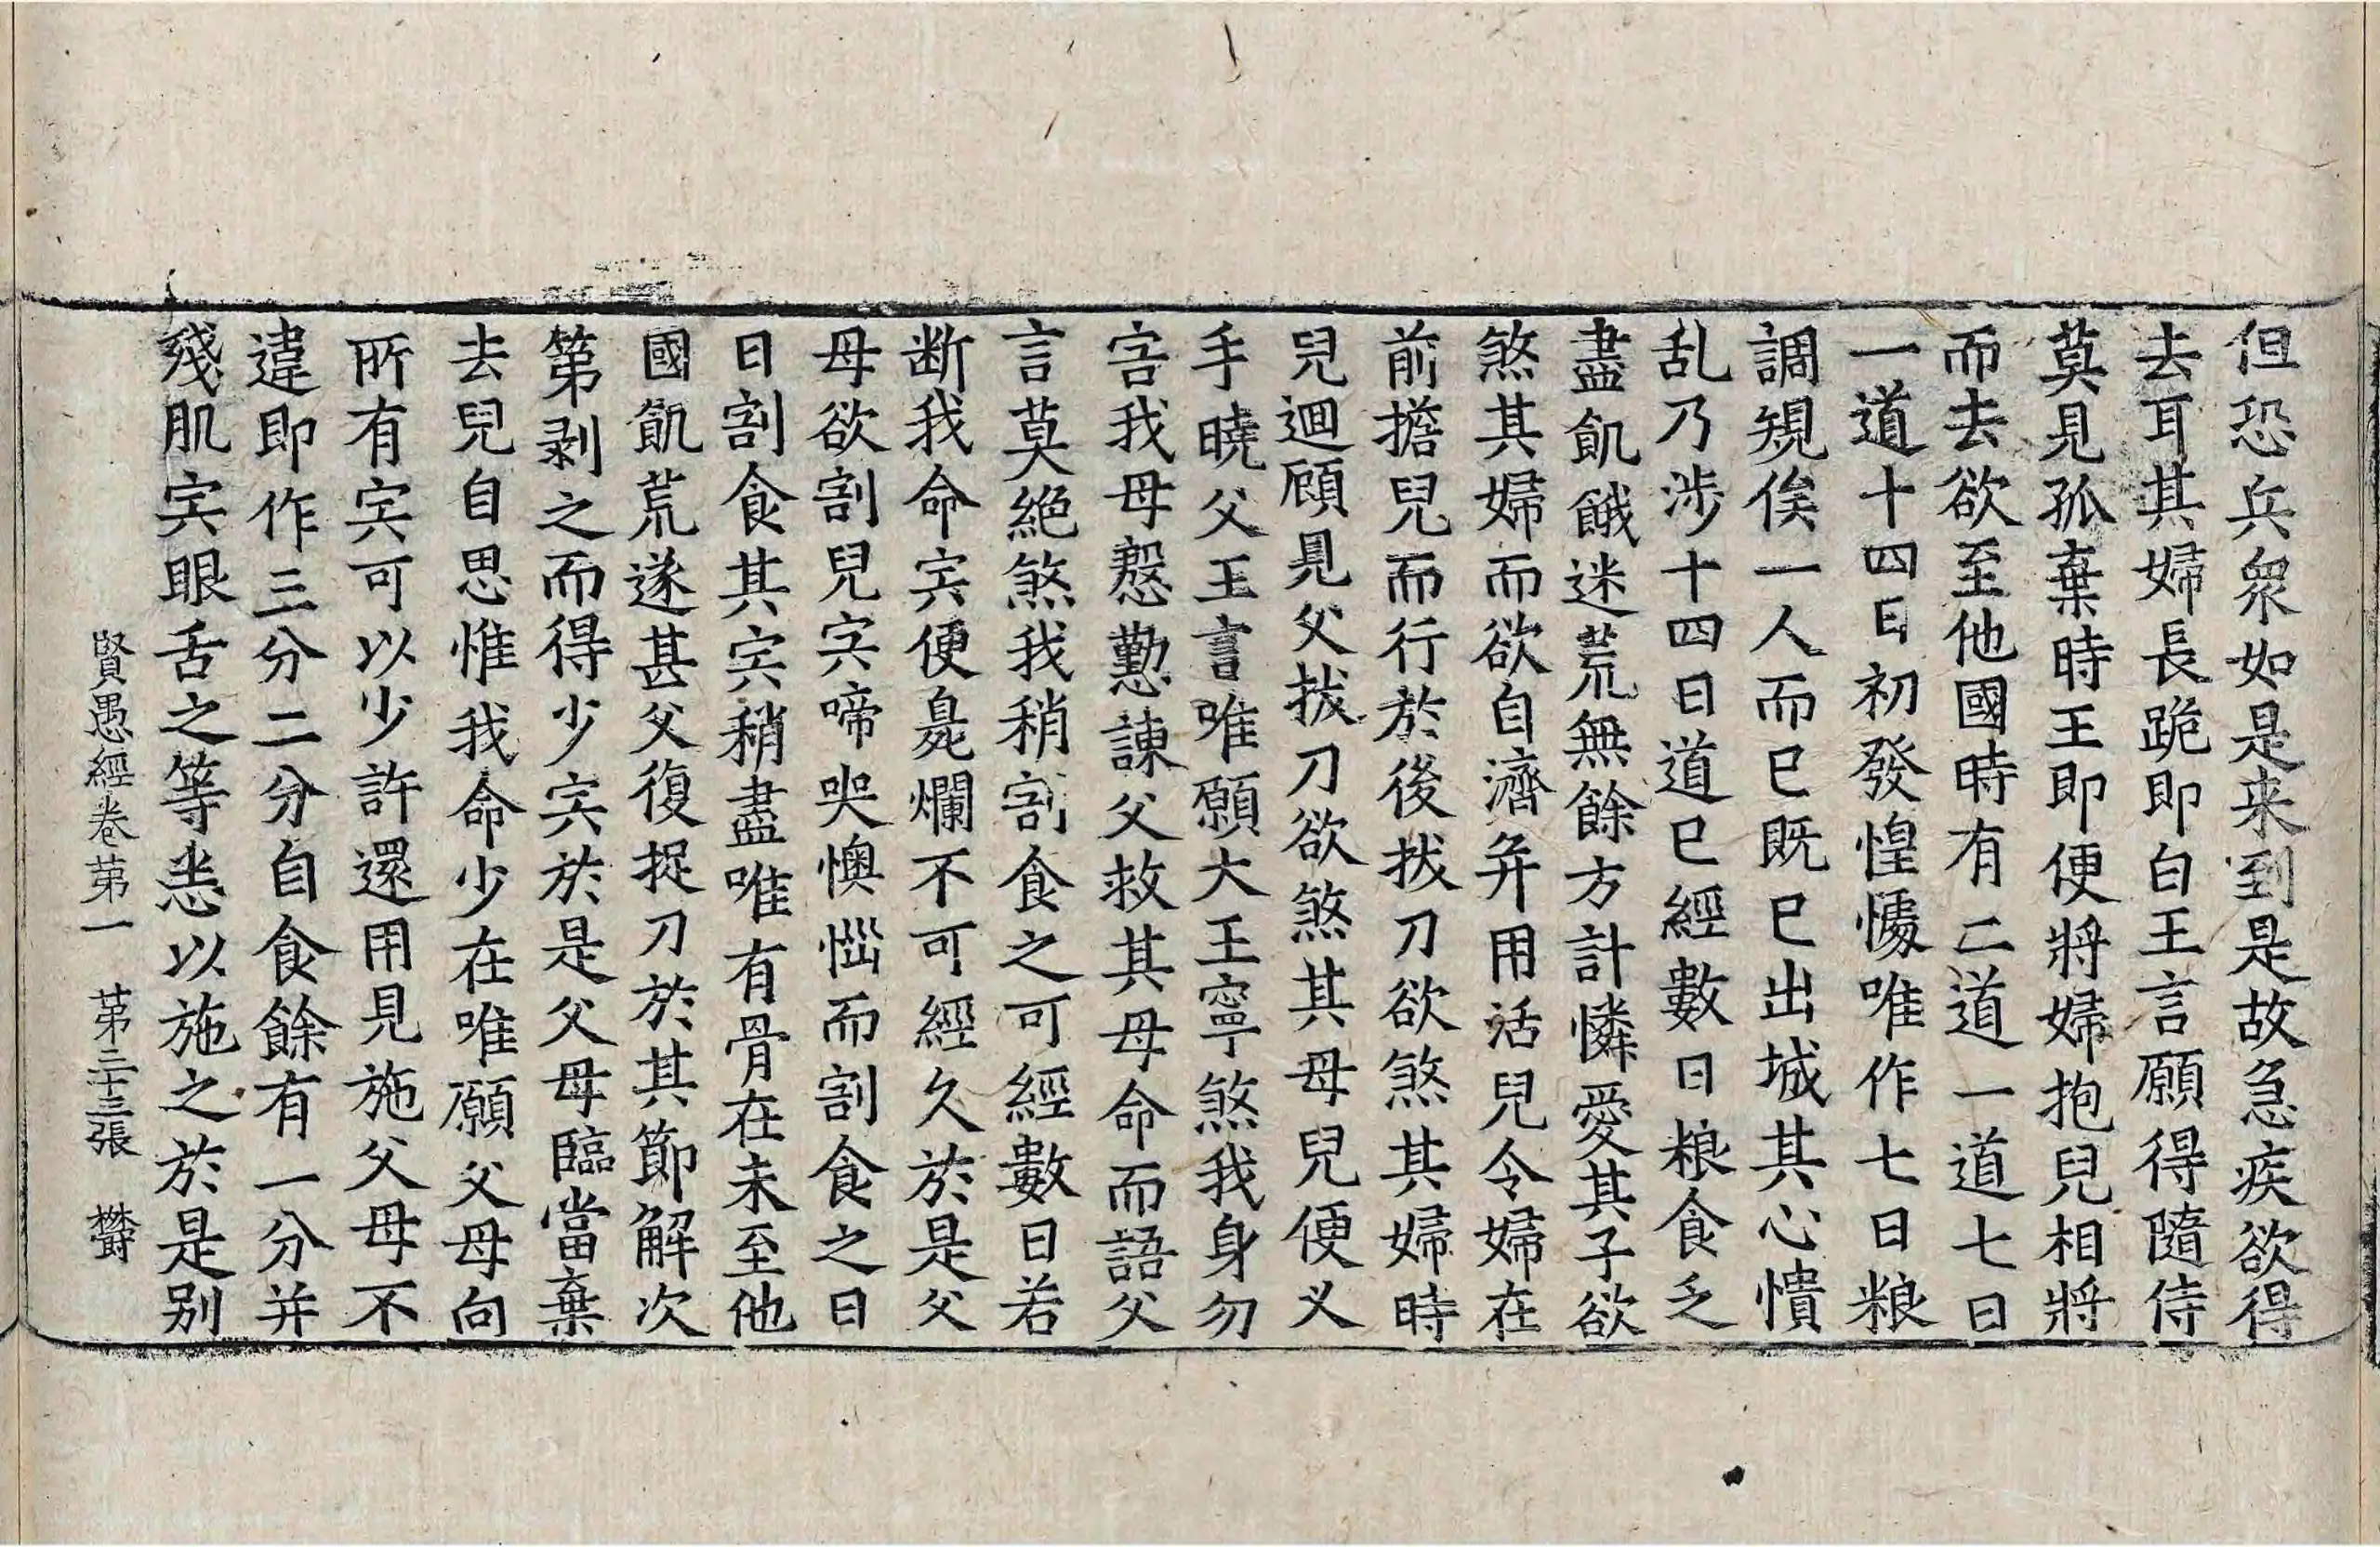 但恐兵衆如是来到是故急疾欲得
去耳其婦長跪即白王言願得隨侍
莫見孤棄時王即便將婦抱兒相將
而去欲至他國時有二道一道七日
一道十四日初發惶懅唯作七日粮
調規俟一人而已既已出城其心憒
乱乃涉十四日道已經數日粮食乏
盡飢餓迷荒無餘方計憐愛其子欲
煞其婦而欲自濟并用活兒令婦在
前擔兒而行於後拔刀欲煞其婦時
兒迴顧見父拔刀欲煞其母兒便义
手曉父王言唯願大王寧煞我身勿
害我母慇懃諫父救其母命而語父
言莫絶煞我稍割食之可經數日若
断我命宍便臰爛不可經久於是父
母欲割兒宍啼哭懊惱而割食之日
日割食其宍稍盡唯有骨在未至他
國飢荒遂甚父復捉刀於其節解次
第剥之而得少宍於是父母臨當棄
去兒自思惟我命少在唯願父母向
所有宍可以少許還用見施父母不
違即作三分二分自食餘有一分并
殘肌宍眼舌之等恙以施之於是别
賢愚經卷苐一　苐二十三張　欝